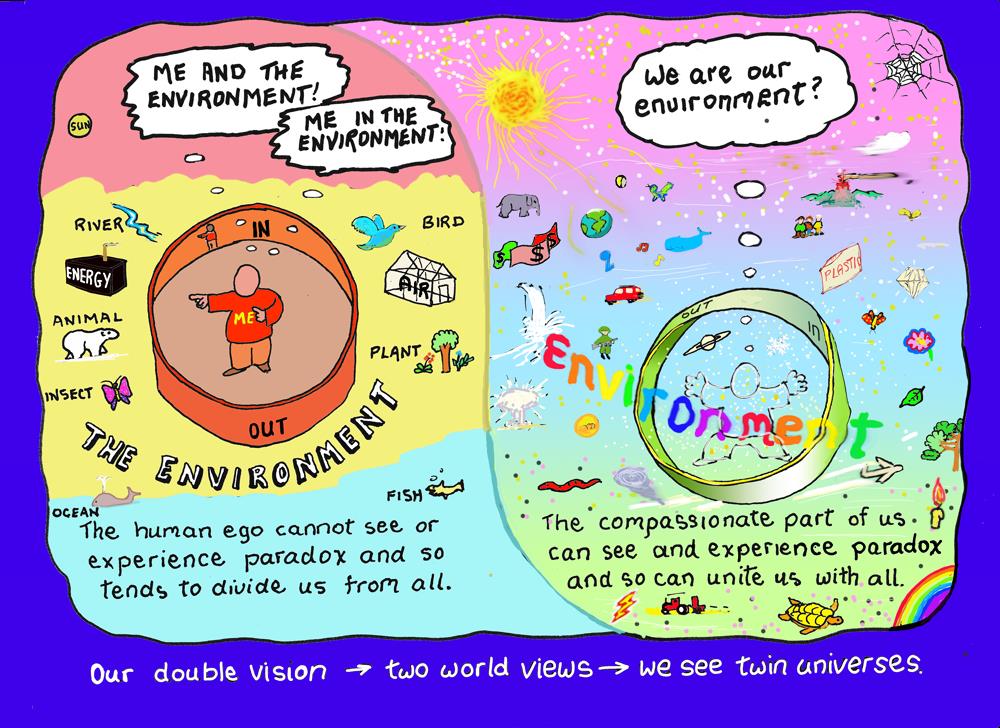 ME AND THE
ENVIRONMENT!
ME IN THE
ENVIRONMENT!
SUN
RIVER
BIRD
IN
ENERGY
AIR
ANIMAL
ME
PLANT
INSECT
OUT
THE ENVIRONMENT
OCEAN
FISH
The human ego cannot see or
experience paradox and so
tends to divide us from all.
We are our
environment?
$ $ $
PLASTIC
OUT
IN
Environment
The compassionate part of us
can see and experience paradox
and so can unite us with all.
Our double vision → two world views → we see twin universes.